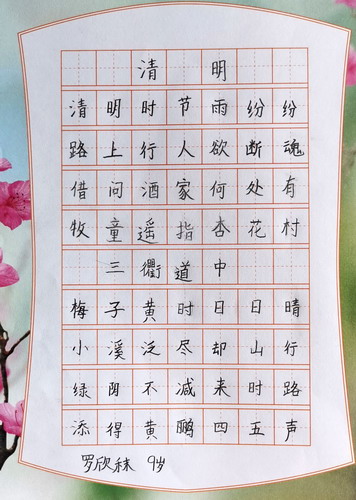 清明
清明时节雨纷纷
路上行人欲断魂
借问酒家何处有
牧童遥指杏花村
三衢道中
梅子黄时日日晴
小溪泛尽却山行
绿阴不减来时路
添得黄鹏四五声
罗欣秝 9岁